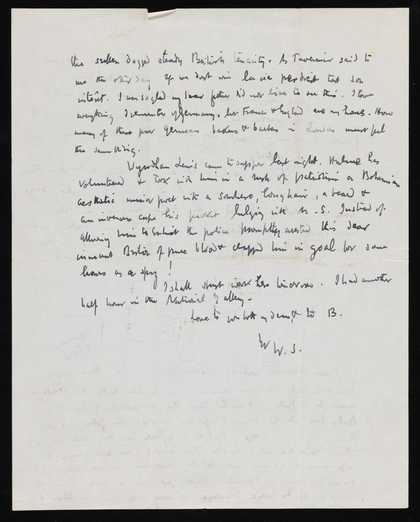 the sullen dogged steady British tenacity. As Tavernier said to
me the other day if we don't win la vie perdrait tout son
intérêt. I was so glad my dear father did not live to see this. I love
everything I remember of Germany. but France & England are my heart. How
many of those poor German bakers & barbers in London must feel
the same thing.
Wyndham Lewis came to supper last night. Hulme has
volunteered & took with him in a rush of patriotism a Bohemian
aesthetic minor poet with a sombrero, long hair, a beard &
an inverness cape his pocket bulging with M.S. Instead of
allowing him to enlist the police promptly arrested this dear
innocent Briton of pure blood & clapped him in gaol for some
hours as a spy!
I shall meet her tomorrow. I had another
half hour in the National Gallery.
Love to you both my dear & to B.
W. S.